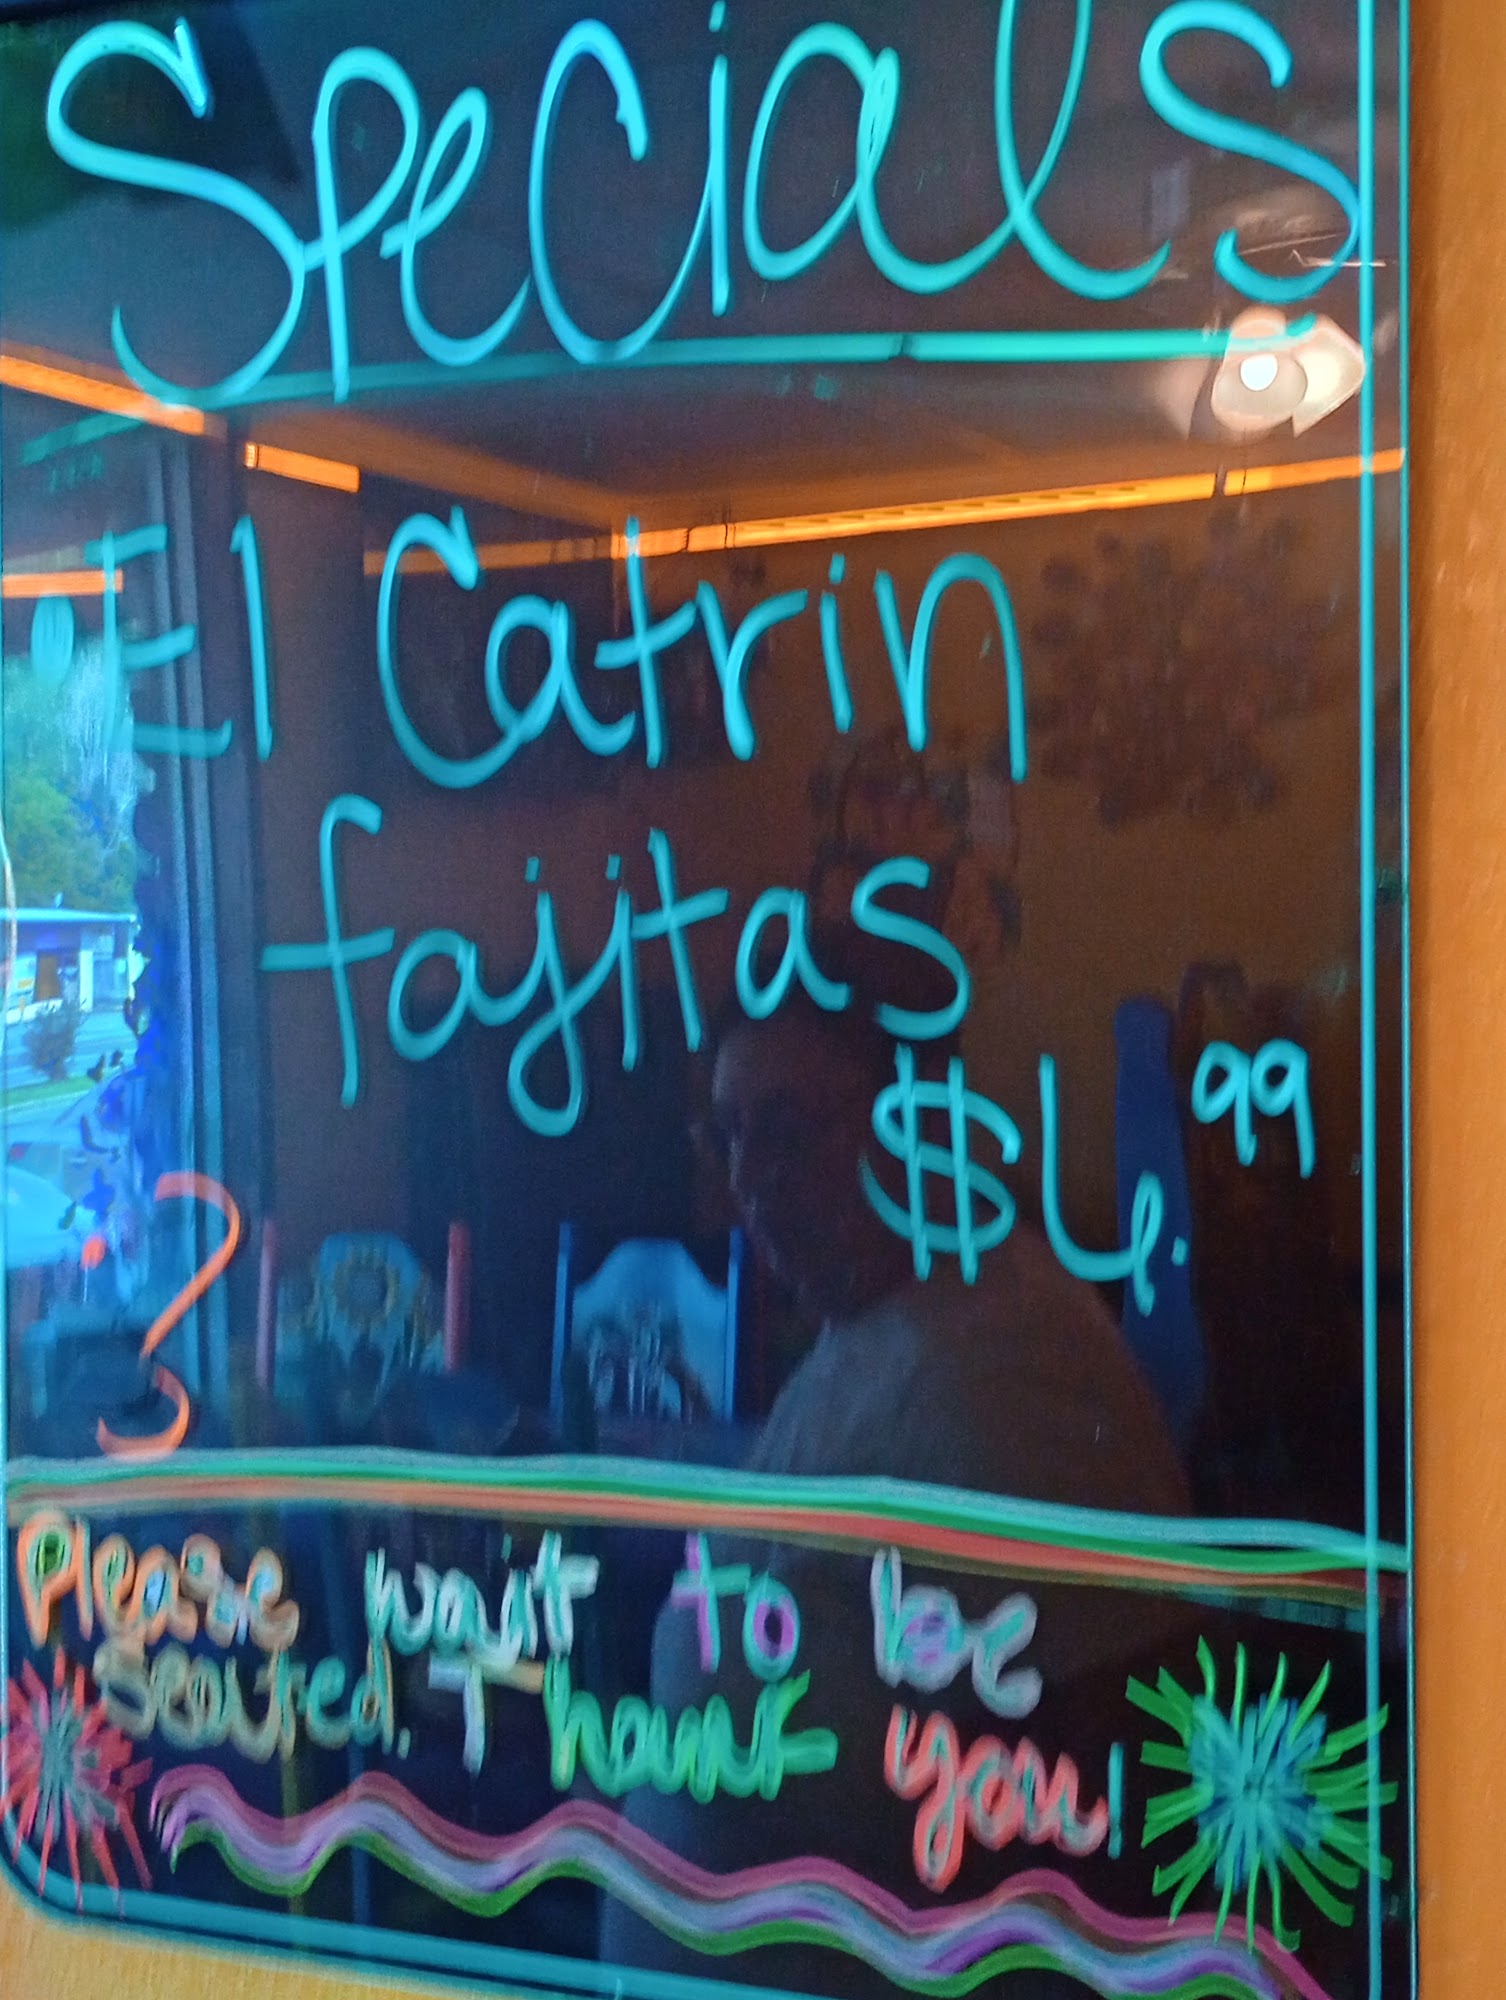 Specials
El Catrin
fajitas
$6.99
Please wait to be
seated. Thank you!